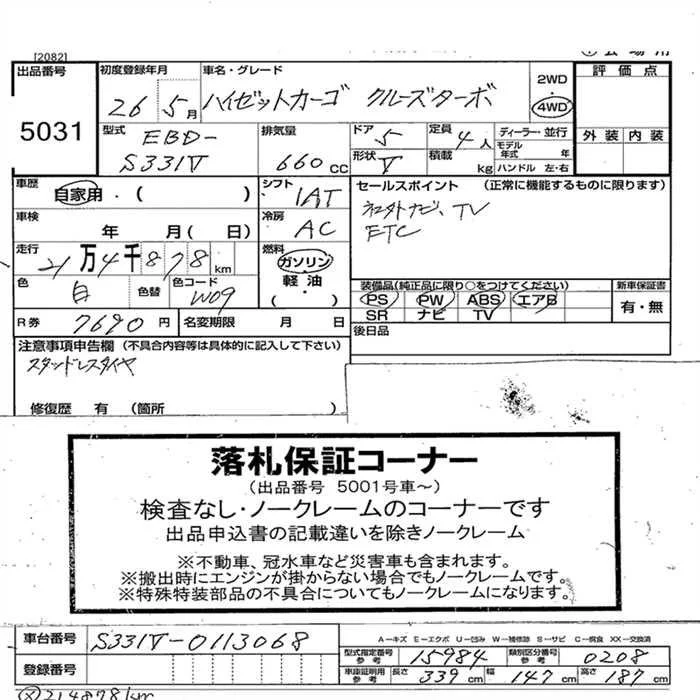 [2082]
出品番号
5031
初度登録年月
26 5月
車名・グレード
ハイゼットカーゴ クルーズターボ
2WD
・
4WD
評価点
外装 内装
型式
EBD-
S331V
排気量
660 cc
ドア 5
形状 V
定員 4人
積載 kg
ディーラー・並行
モデル年式 年
ハンドル 左・右
車歴
自家用・( )
シフト
IAT
セールスポイント (正常に機能するものに限ります)
TV
ETC
車検
年 月(日)
冷房
AC
走行
21万4千878km
燃料
ガソリン
軽油
・( )
色
白
色替
色コード
W09
装備品(純正品に限り○をつけてください)
PS PW ABS エアB
SR ナビ TV
新車保証書
有・無
R券 7690 円
名変期限 月 日
後日品
注意事項申告欄 (不具合内容等は具体的に記入して下さい)
スタッドレスタイヤ
修復歴 有 (箇所 )
落札保証コーナー
(出品番号 5001号車〜)
検査なし・ノークレームのコーナーです
出品申込書の記載違いを除きノークレーム
※不動車、冠水車など災害車も含まれます。
※搬出時にエンジンが掛からない場合でもノークレームです。
※特殊特装部品の不具合についてもノークレームになります。
A−キズ E−エクボ U−凹み W−補修跡 S−サビ C−腐食 XX−交換済
車台番号
S331V-0113068
型式指定番号
参考
15984
類別区分番号
参考
0208
登録番号
車庫証明用
参考
長さ 339 cm
幅 147 cm
高さ 187 cm
214878km